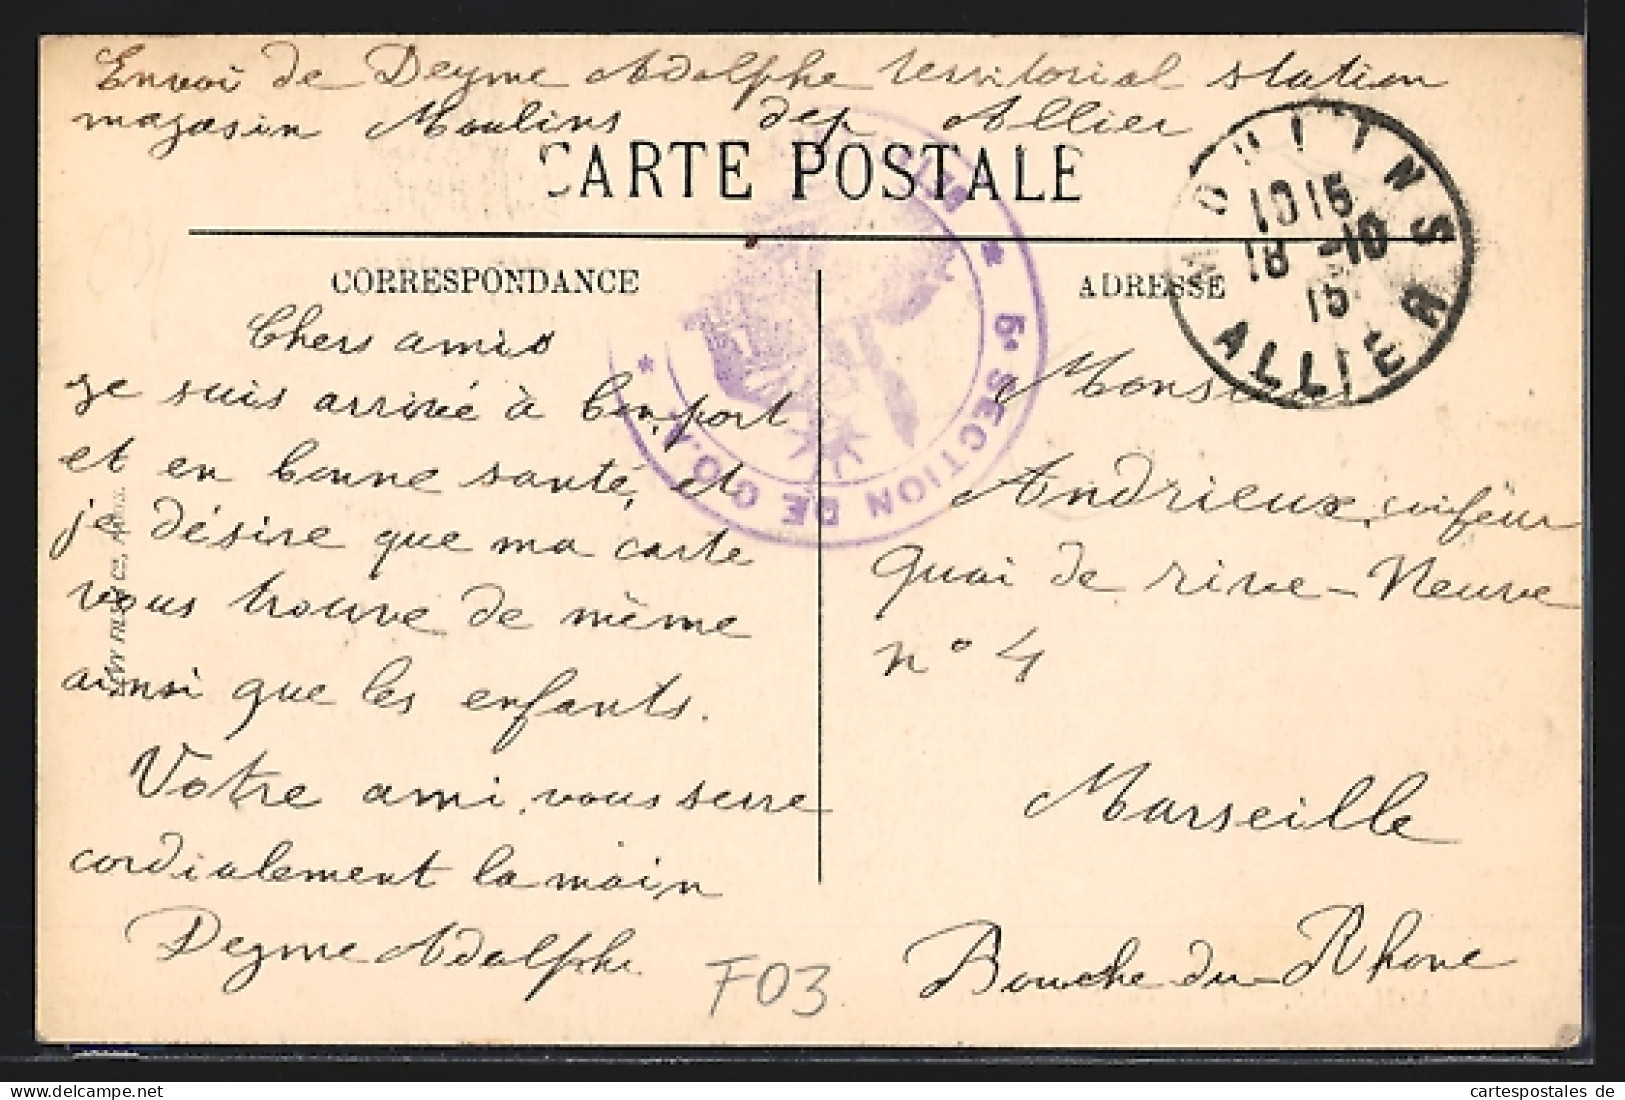 Envoi de Deyme Adolphe territorial station
magasin Moulins dep Allier
CARTE POSTALE
MOULINS
1015
18 -10
15
ALLIER
SECTION DE C.O.A.
CORRESPONDANCE
Chers amis
je suis arrivé à bon port
et en bonne santé, et
je désire que ma carte
vous trouve de même
ainsi que les enfants.
Votre ami, vous serre
cordialement la main
Deyme Adolphe
F03
ADRESSE
Monsieur
Andrieux, coifeur
quai de rive-Neuve
n° 4
Marseille
Bouche-du-Rhone
cartespostales de